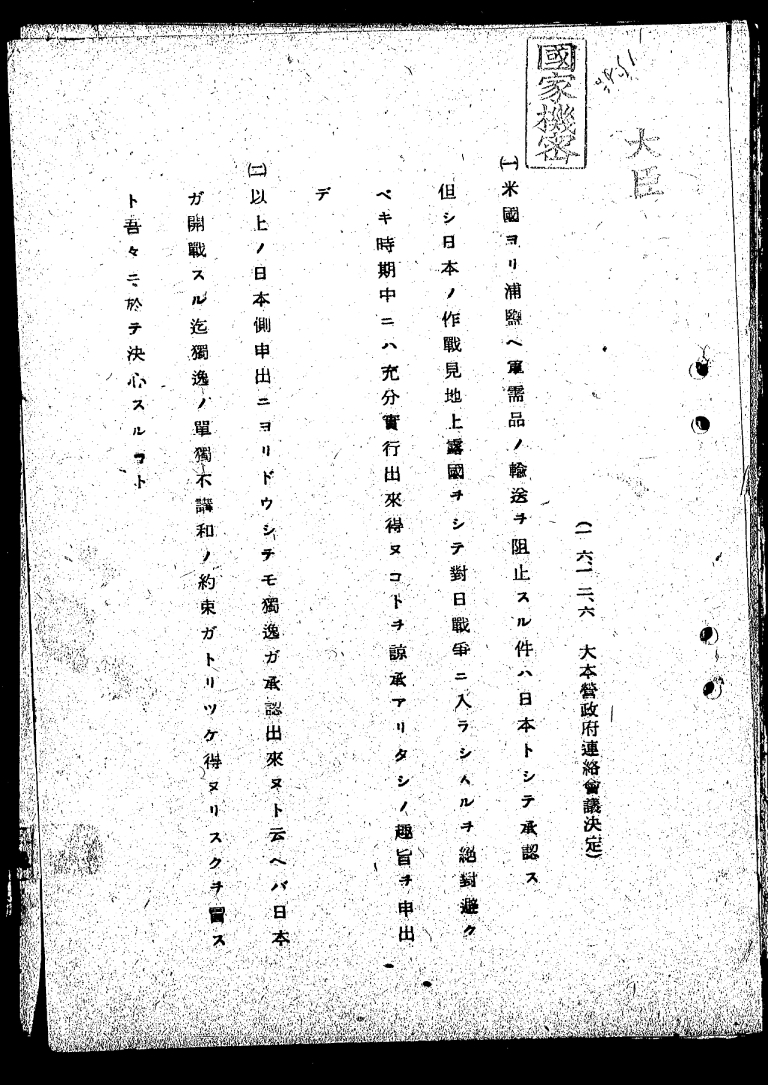 國家機密
大臣
(一六、一二、六　大本營政府連絡會議決定)
(一)米國ヨリ浦鹽ヘ軍需品ノ輸送ヲ阻止スル件ハ日本トシテ承認ス
但シ日本ノ作戰見地上露國ヲシテ對日戰爭ニ入ラシムルヲ絕對避ク
ベキ時期中ニハ充分實行出來得ヌコトヲ諒承アリタシノ趣旨ヲ申出
デ
(二)以上ノ日本側申出ニヨリドウシテモ獨逸ガ承認出來ヌト云ヘバ日本
ガ開戰スル迄獨逸ノ單獨不講和ノ約束ガトリツケ得ヌリスクヲ冒ス
ト吾々ニ於テ決心スルコト